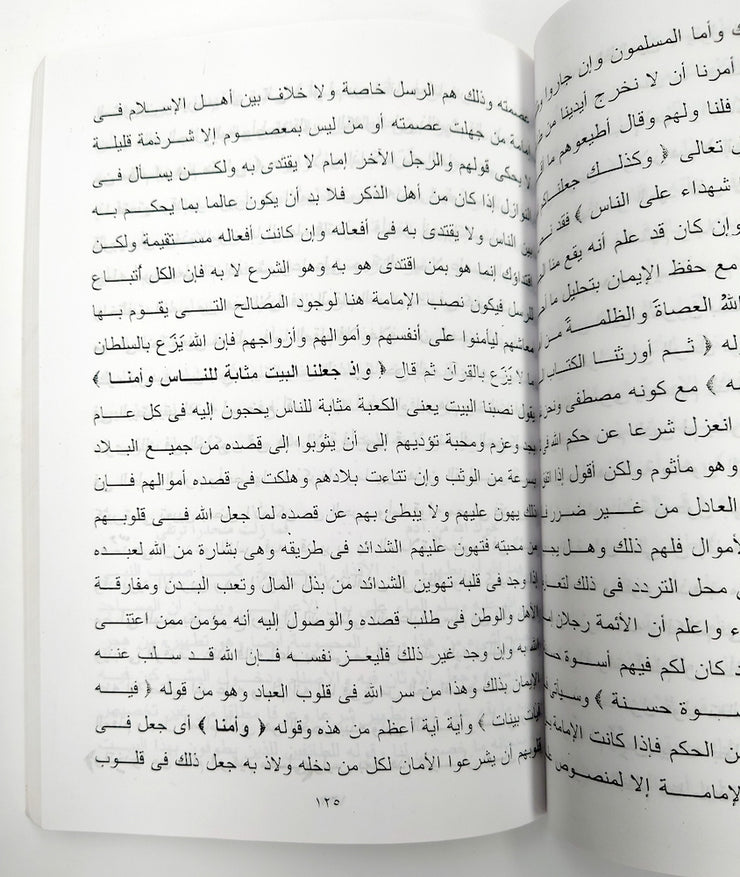 ك وأما المسلمون وإن جاروا
أمرنا أن لا نخرج أيدينا من
فلنا ولهم وقال أطيعوهم ما
تعالى ﴿ وكذلك جعلناكم
شهداء على الناس ﴾ فقد
وإن كان قد علم أنه يقع منا
مع حفظ الإيمان بتحليل ما
الله العصاة والظلمة من
﴿ ثم أورثنا الكتاب
﴾ مع كونه مصطفى
انعزل شرعا عن حكم الله
وهو مأثوم ولكن أقول إذا
العادل من غير ضرر
لأموال فلهم ذلك وهل
محل التردد فى ذلك
واعلم أن الأئمة رجلان
كان لكم فيهم أسوة
حسنة ﴾
من الحكم فإذا كانت الإمامة
لإمامة إلا لمنصوص
عصمته وذلك هم الرسل خاصة ولا خلاف بين أهل الإسلام فى
إمامة من جهلت عصمته أو من ليس بمعصوم إلا شرذمة قليلة
لا يحكى قولهم والرجل الآخر إمام لا يقتدى به ولكن يسأل فى
النوازل إذا كان من أهل الذكر فلا بد أن يكون عالما بما يحكم به
بين الناس ولا يقتدى به فى أفعاله وإن كانت أفعاله مستقيمة ولكن
اقتداؤك إنما هو بمن اقتدى هو به وهو الشرع لا به فإن الكل أتباع
للرسل فيكون نصب الإمامة هنا لوجود المصالح التى يقوم بها
معاشهم ليأمنوا على أنفسهم وأموالهم وأزواجهم فإن الله يَزَع بالسلطان
ما لا يَزَع بالقرآن ثم قال ﴿ وإذ جعلنا البيت مثابة للناس وأمنا ﴾
يقول نصبنا البيت يعنى الكعبة مثابة للناس يحجون إليه فى كل عام
بجد وعزم ومحبة تؤديهم إلى أن يثوبوا إلى قصده من جميع البلاد
بسرعة من الوثب وإن تناءت بلادهم وهلكت فى قصده أموالهم فإن
ذلك يهون عليهم ولا يبطئ بهم عن قصده لما جعل الله فى قلوبهم
من محبته فتهون عليهم الشدائد فى طريقه وهى بشارة من الله لعبده
إذا وجد فى قلبه تهوين الشدائد من بذل المال وتعب البدن ومفارقة
الأهل والوطن فى طلب قصده والوصول إليه أنه مؤمن ممن اعتنى
الله به وإن وجد غير ذلك فليعز نفسه فإن الله قد سلب عنه
الإيمان بذلك وهذا من سر الله فى قلوب العباد وهو من قوله ﴿ فيه
آيات بينات ﴾ وأية آية أعظم من هذه وقوله ﴿ وأمنا ﴾ أى جعل فى
قلوبهم أن يشرعوا الأمان لكل من دخله ولاذ به جعل ذلك فى قلوب
١٢٥